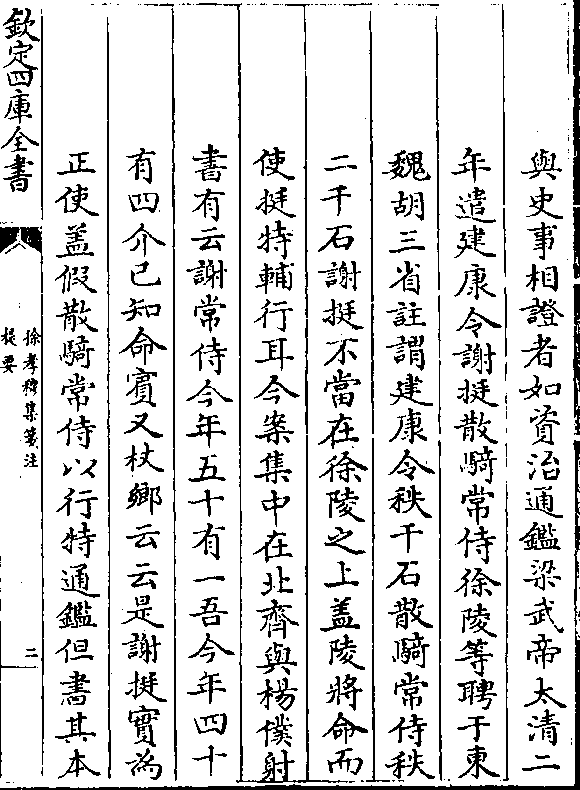 與史事相證者如資治通鑑梁武帝太清二
年遣建康令謝挺散騎常侍徐陵等聘于東
魏胡三省註謂建康令秩千石散騎常侍秩
二千石謝挺不當在徐陵之上蓋陵將命而
使挺特輔行耳今案集中在北齊與楊僕射
書有云謝常侍今年五十有一吾今年四十
有四介已知命賓又杖鄉云云是謝挺實為
正使盖假散騎常侍以行特通鑑但書其本
欽定四庫全書
徐孝穆集箋注
提要
二